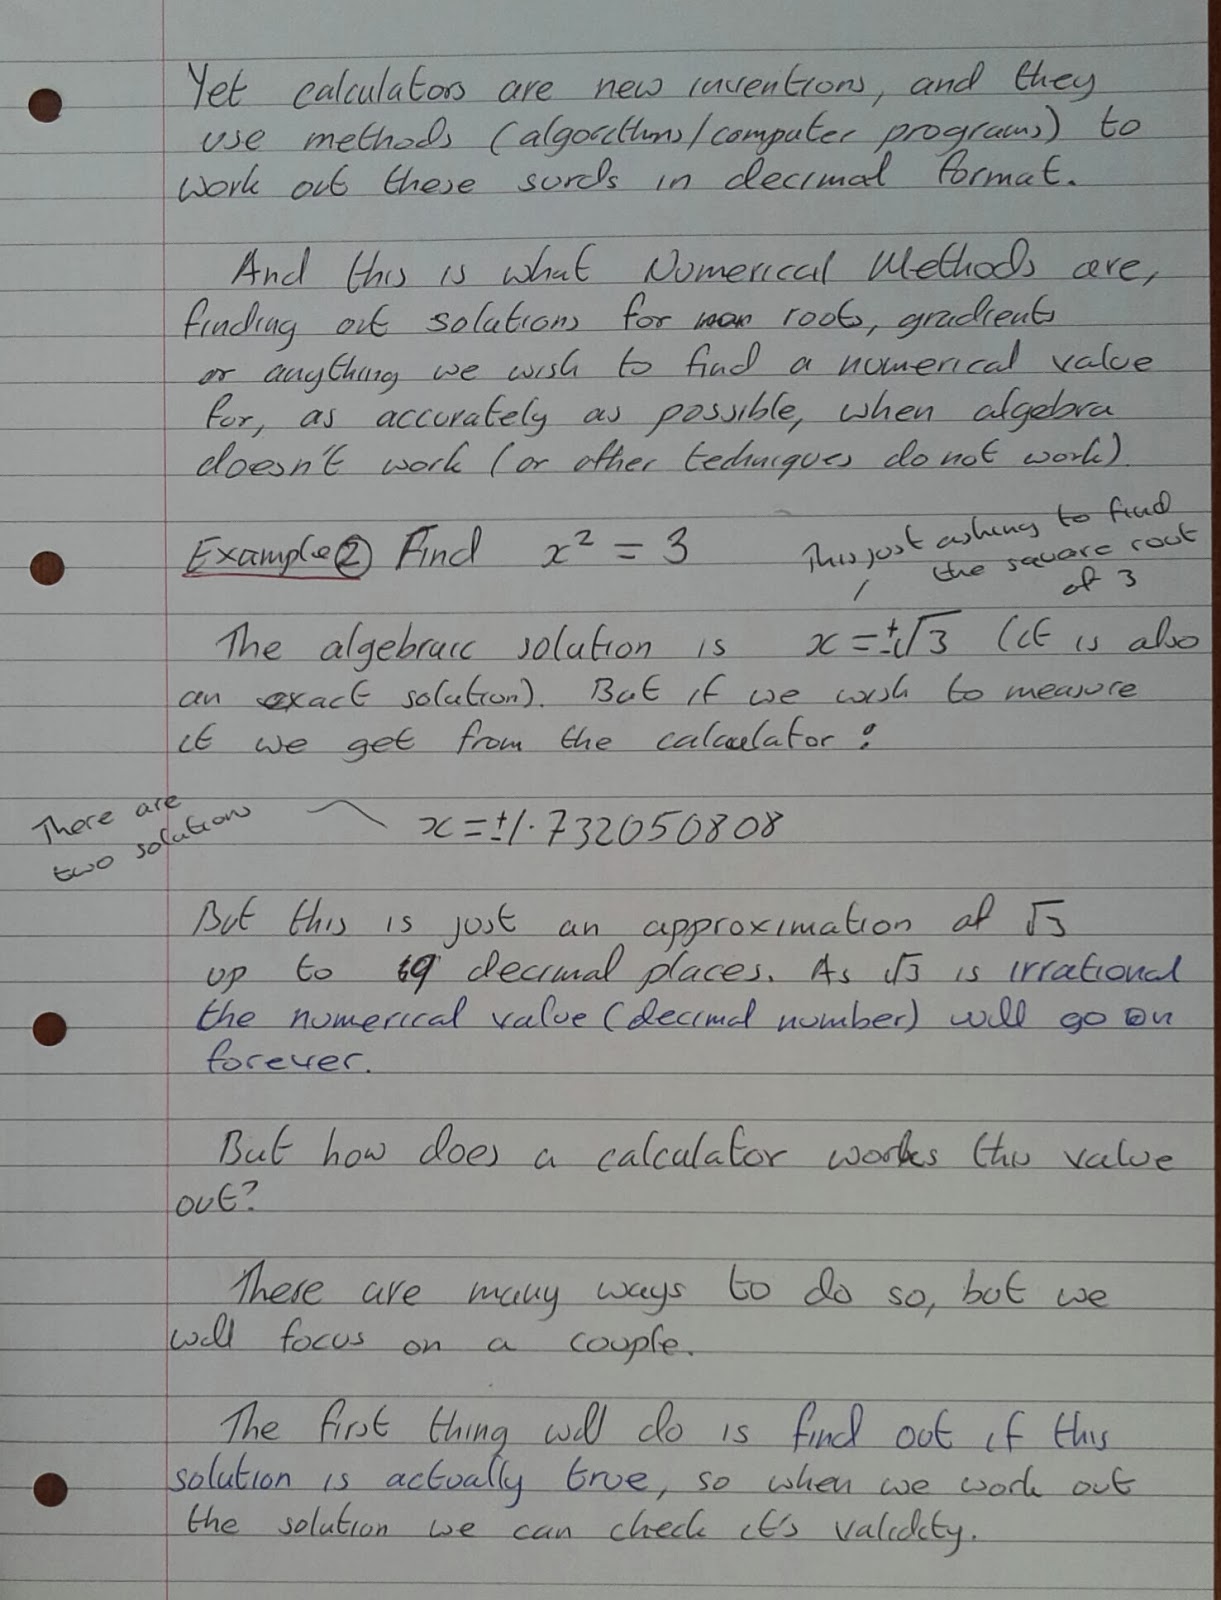 Yet calculators are new inventions, and they
use methods (algorithms/computer programs) to
work out these surds in decimal format.
And this is what Numerical Methods are,
finding out solutions for roots, gradients
or anything we wish to find a numerical value
for, as accurately as possible, when algebra
doesn't work (or other techniques do not work).
Example ② Find x² = 3
This just asking to find
the square root
of 3
The algebraic solution is x = ±√3 (it is also
an exact solution). But if we wish to measure
it we get from the calculator:
There are
two solutions
x = ±1.732050808
But this is just an approximation of √3
up to 9 decimal places. As √3 is irrational
the numerical value (decimal number) will go on
forever.
But how does a calculator works this value
out?
There are many ways to do so, but we
will focus on a couple.
The first thing will do is find out if this
solution is actually true, so when we work out
the solution we can check it's validity.